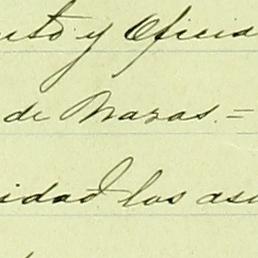 y Oficia
de Nazas.=
idad los asu